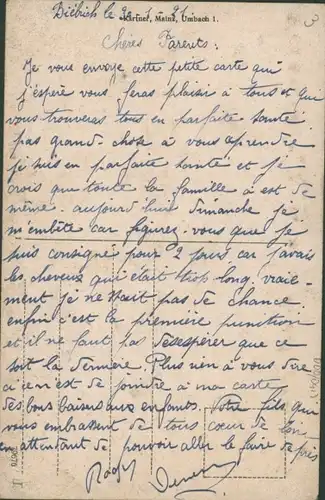 Biébrich le 30-1-21
Kirfner, Mainz, Umbach 1.
Chères Parents:
Je vous envoye cette petite carte qui
j'espére vous feras plaisir à tous et qui
vous trouveras tous en parfaite santé
pas grand-chose à vous aprendre
je suis en parfaite santé et je
crois que toute la famille a est de
même. aujourd'hui dimanche je
m'embête car figurez-vous que je
suis consigné pour 2 jours, car j'avais
les cheveux qui était trop long, vraie-
ment je ne pas de chance
enfin c'est la premiere punition
et il ne faut pas désespérer que ce
soit la derniere. Plus rien à vous dire
si ce n'est de joindre à ma carte
des bons baisers aux enfants. Votre fils, qui
vous embrassent de tous coeur de loin
en attentant de pouvoir aller le faire de près
Roger